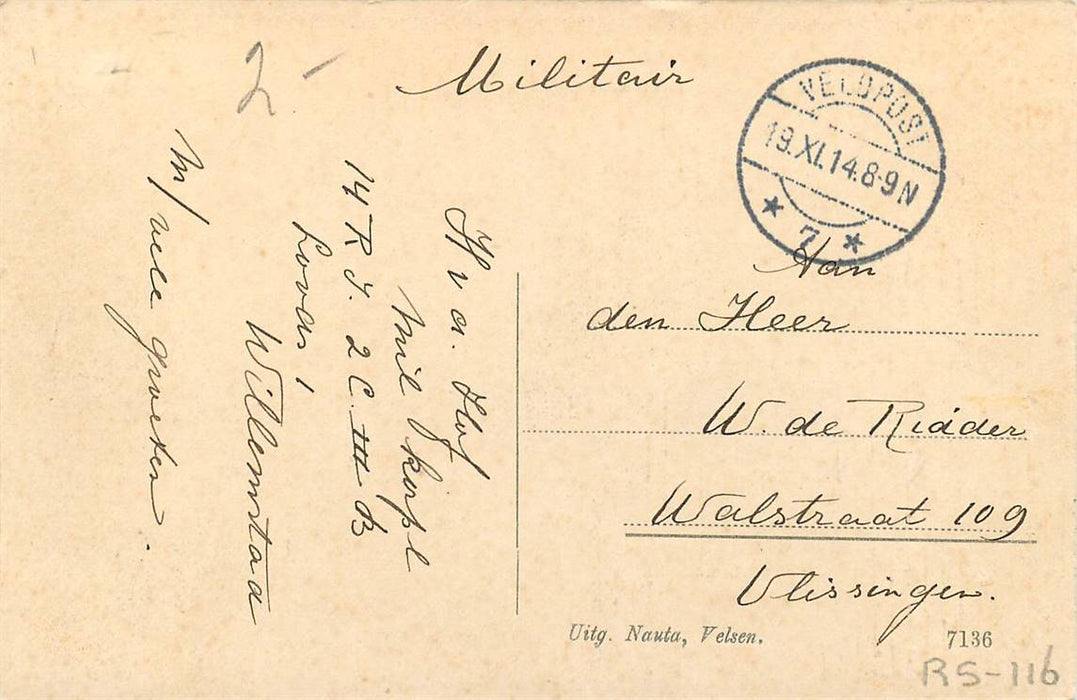 Militair
VELDPOST
19.XI.14.8-9N
7
Aan
den Heer
W. de Ridder
Walstraat 109
Vlissingen.
H v d. Hof
mil
14 R. I. 2 C. III B
Willemstad
M/ vele groeten.
Uitg. Nauta, Velsen.
7136
RS-116